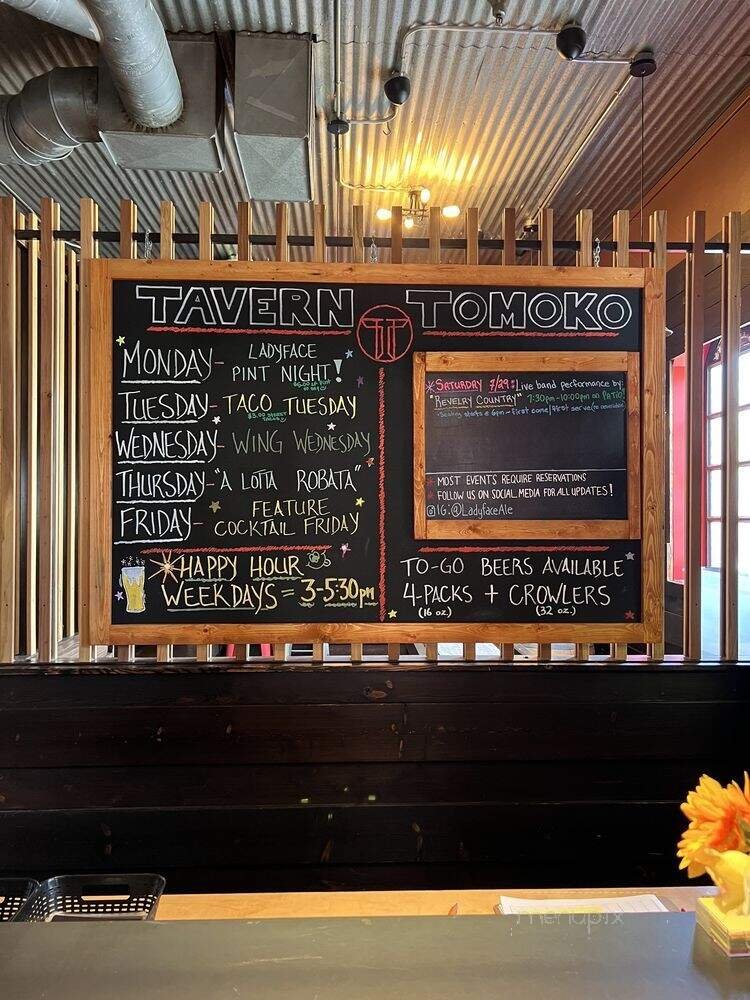 TAVERN TOMOKO
MONDAY - LADYFACE
PINT NIGHT!
$6.00 LF PINT
TUESDAY - TACO TUESDAY
$3.00 STREET
TACOS
WEDNESDAY - WING WEDNESDAY
THURSDAY - "A LOTTA ROBATA"
FRIDAY - FEATURE
COCKTAIL FRIDAY
HAPPY HOUR
WEEKDAYS = 3-5:30PM
SATURDAY 7/29: Live band performance by:
"REVELRY COUNTRY" 7:30pm-10:00pm on PATIO!
Seating starts @ 6pm - first come/first serve (no reservations)
MOST EVENTS REQUIRE RESERVATIONS
FOLLOW US ON SOCIAL MEDIA FOR ALL UPDATES!
IG:@LadyfaceAle
TO-GO BEERS AVAILABLE
4-PACKS + CROWLERS
(16 oz.) (32 oz.)
menupix